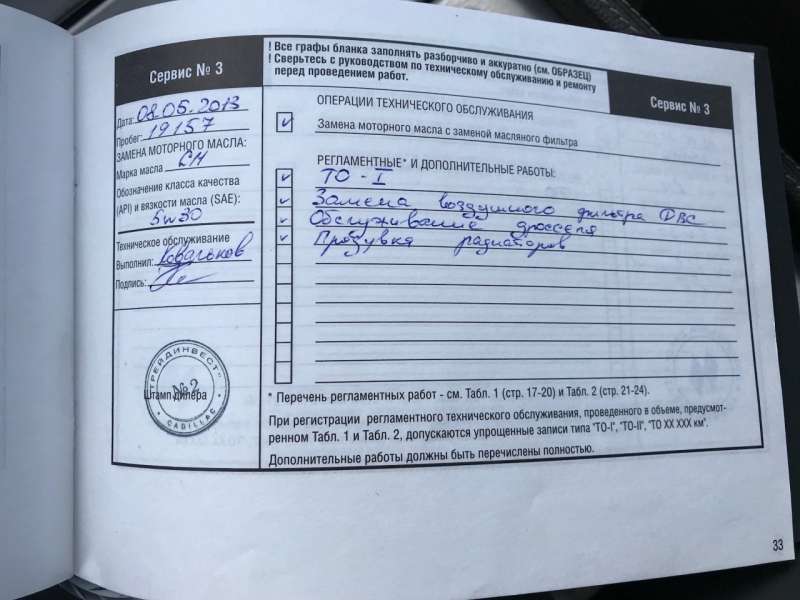 Сервис № 3
! Все графы бланка заполнять разборчиво и аккуратно (см. ОБРАЗЕЦ)
! Сверьтесь с руководством по техническому обслуживанию и ремонту
перед проведением работ.
Сервис № 3
Дата: 08.05.2013
Пробег: 19157
ЗАМЕНА МОТОРНОГО МАСЛА:
Марка масла
Обозначение класса качества
(API) и вязкости масла (SAE):
5w30
Техническое обслуживание
Выполнил: Ковальков
Подпись:
ТРЕЙДИНВЕСТ
№2
Штамп дилера
CADILLAC
ОПЕРАЦИИ ТЕХНИЧЕСКОГО ОБСЛУЖИВАНИЯ
Замена моторного масла с заменой масляного фильтра
РЕГЛАМЕНТНЫЕ* И ДОПОЛНИТЕЛЬНЫЕ РАБОТЫ:
ТО - I
Замена воздушного фильтра ДВС
Обслуживание дросселя
Продувка радиаторов
* Перечень регламентных работ - см. Табл. 1 (стр. 17-20) и Табл. 2 (стр. 21-24).
При регистрации регламентного технического обслуживания, проведенного в объеме, предусмот-
ренном Табл. 1 и Табл. 2, допускаются упрощенные записи типа "ТО-I", "ТО-II", "ТО XX XXX км".
Дополнительные работы должны быть перечислены полностью.
33